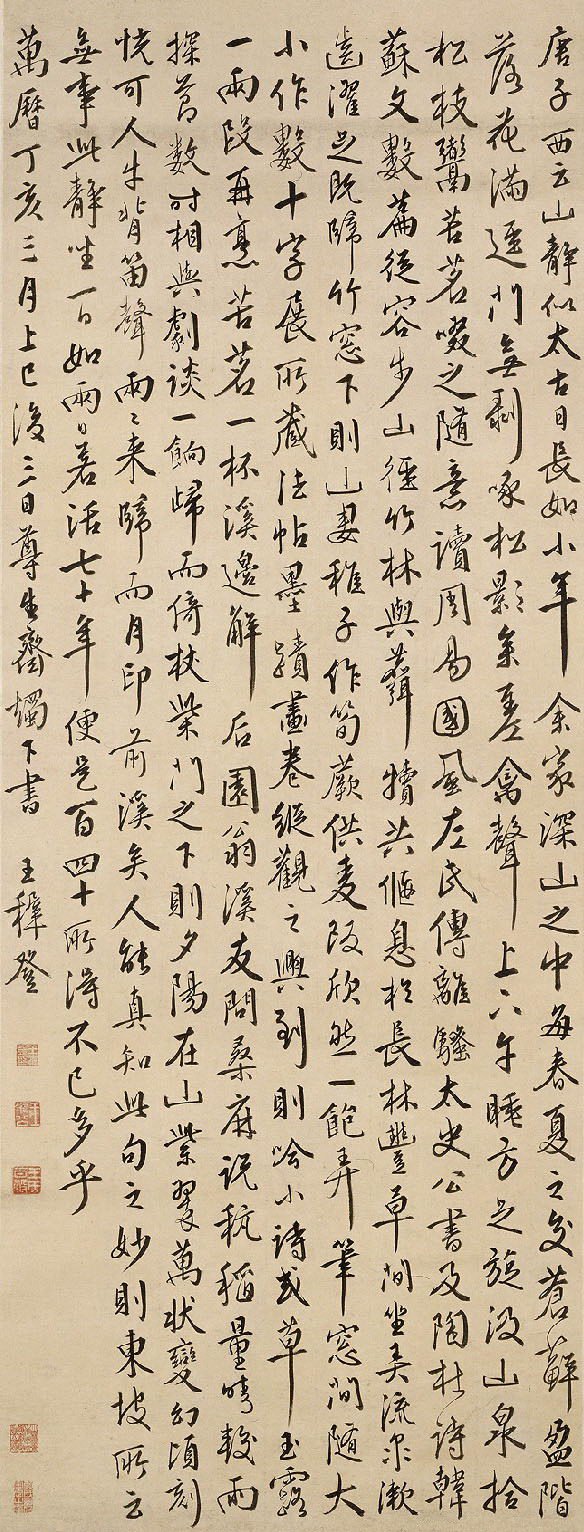 唐子西云山靜似太古日長如小年余家深山之中每春夏之交蒼蘚盈階
落花滿逕門無剝啄松影參差禽聲上下午睡方足旋汲山泉拾
松枝鬻苦茗啜之隨意讀周易國風左氏傳離騷太史公書及陶杜詩韓
蘇文數篇從容步山徑竹林與麛犢共偃息於長林豐草間坐弄流泉漱
齒濯足既歸竹窓下則山妻稚子作筍蕨供麥飯欣然一飽弄筆窓間隨大
小作數十字展所藏法帖墨蹟畫卷縱觀之興到則吟小詩或草玉露
一兩段再烹苦茗一杯溪邊解后園翁溪友問桑麻說秔稻量晴較雨
探節數时相與劇談一餉歸而倚杖柴門之下則夕陽在山紫翠萬狀變幻頃刻
恍可人牛背笛聲兩〻来歸而月印前溪矣人能真知此句之妙則東坡所云
無事此靜坐一日如兩日若活七十年便是百四十所得不已多乎
萬曆丁亥三月上巳後三日尊生齋燭下書 王穉登